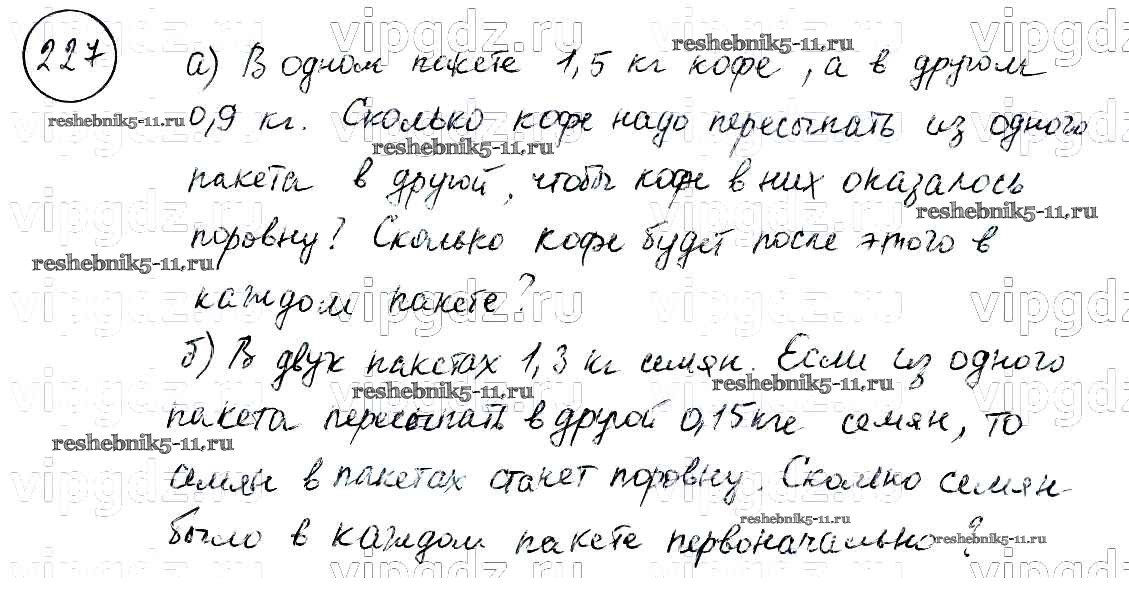 227
а) В одном пакете 1,5 кг кофе, а в другом
0,9 кг. Сколько кофе надо пересыпать из одного
пакета в другой, чтобы кофе в них оказалось
поровну? Сколько кофе будет после этого в
каждом пакете?
б) В двух пакетах 1,3 кг семян. Если из одного
пакета пересыпать в другой 0,15 кг семян, то
семян в пакетах станет поровну. Сколько семян
было в каждом пакете первоначально?
vipgdz.ru
reshebnik5-11.ru